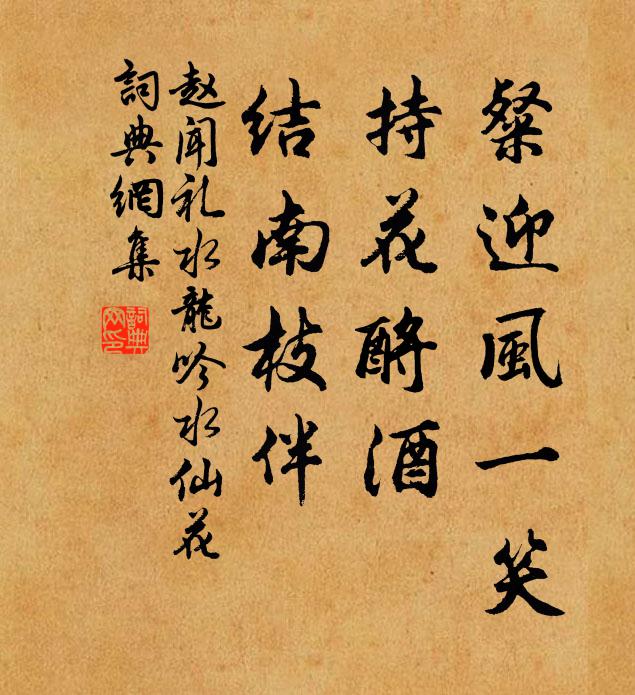 粲迎風一笑
持花酹酒
结南枝伴
赵闻礼水龍吟水仙花
詞典網集
詞典网印